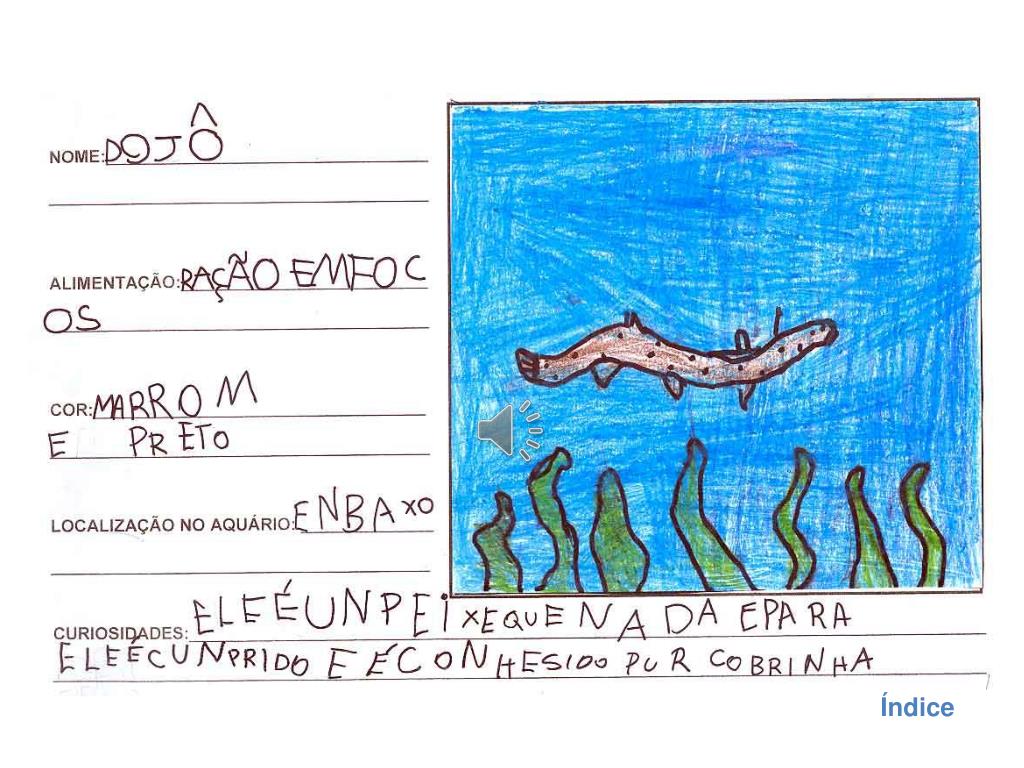 NOME: DOJÔ
ALIMENTAÇÃO: RAÇÃO EMFOC
OS
COR: MARROM
E PRETO
LOCALIZAÇÃO NO AQUÁRIO: ENBAXO
CURIOSIDADES: ELEÉUNPEIXEQUE NADA EPARA
ELEÉCUNPRIDO E ÉCONHESIDO PUR COBRINHA
Índice